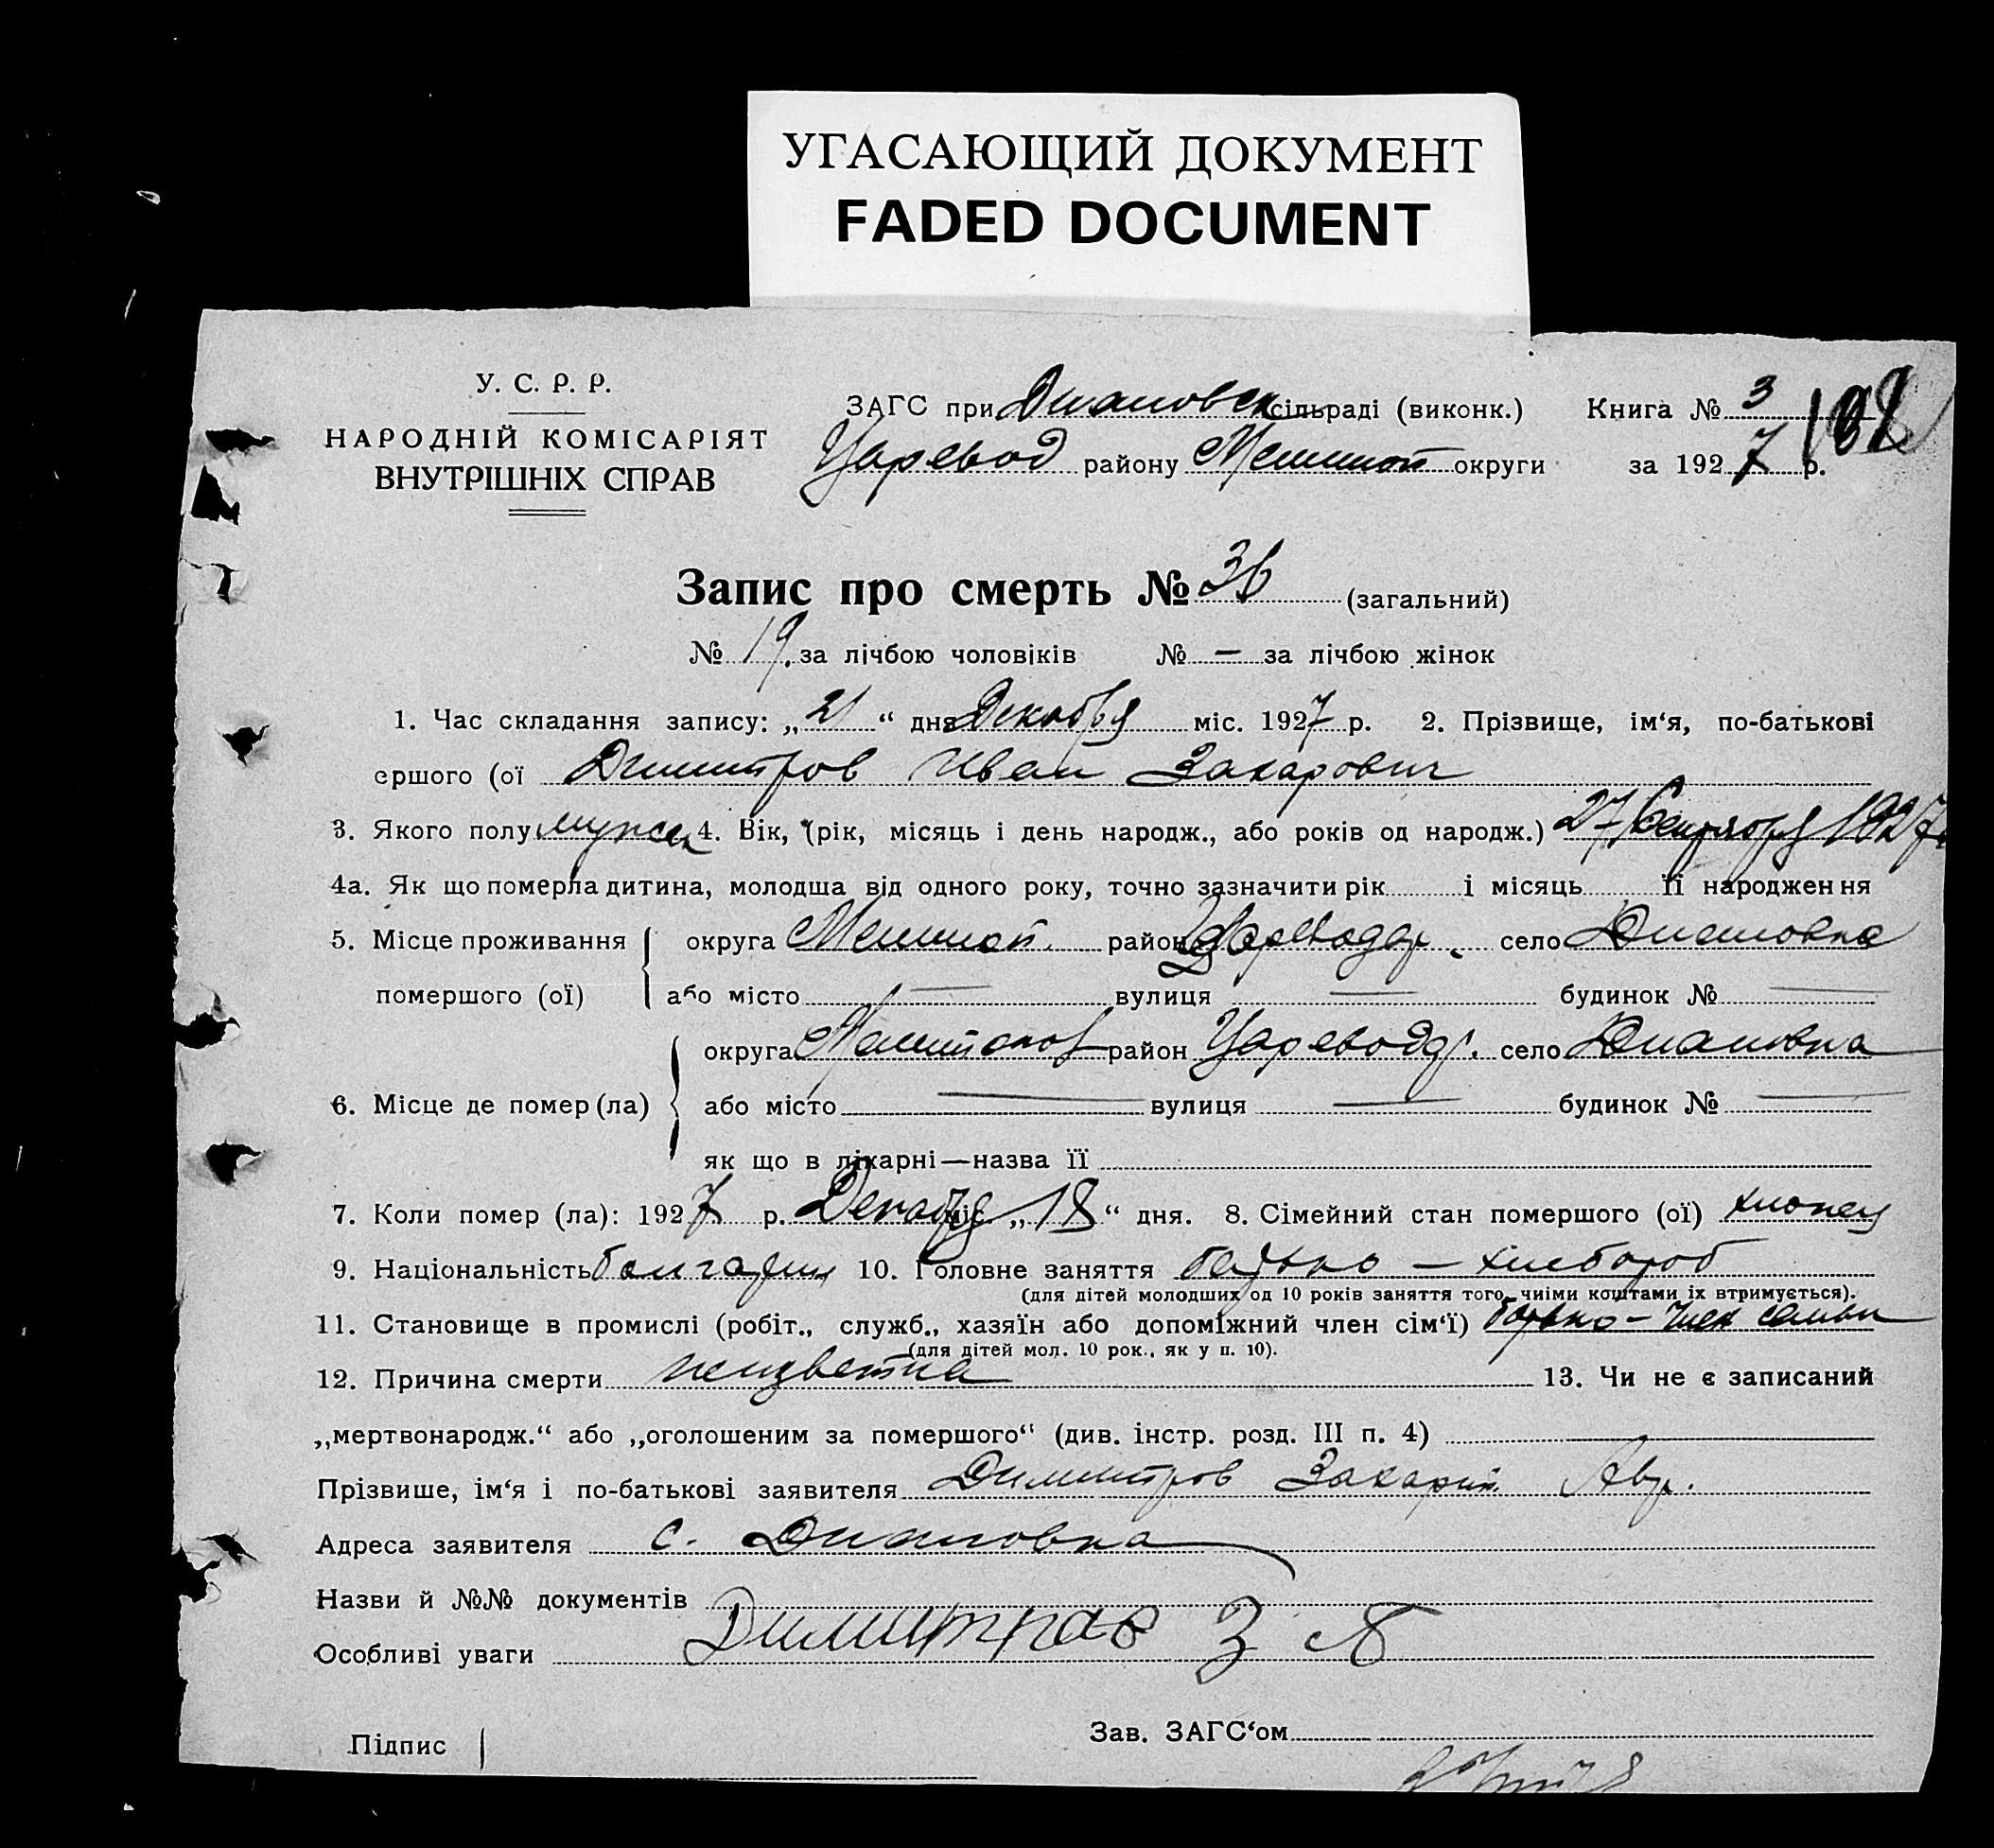 УГАСАЮЩИЙ ДОКУМЕНТ
FADED DOCUMENT
У. С. Р. Р.
НАРОДНІЙ КОМІСАРІЯТ
ВНУТРІШНІХ СПРАВ
ЗАГС при Диановск сільраді (виконк.) Книга № 3
Царевод району округи за 1927 р.
Запис про смерть № 36 (загальний)
№ 19. за лічбою чоловіків № — за лічбою жінок
1. Час складання запису: „21“ дня Декабря міс. 1927 р. 2. Прізвище, ім‘я, по-батькові
ершого (ої Димитров Иван Захарович
3. Якого полу мужск 4. Вік, (рік, місяць і день народж., або років од народж.) 27/Сентября 1927
4а. Як що померла дитина, молодша від одного року, точно зазначити рік і місяць її народження
5. Місце проживання округа Мелитоп. район Цареводар. село Диановка
помершого (ої) або місто — вулиця — будинок № —
округа Мелитопол район Цареводар. село Диановка
6. Місце де помер (ла) або місто — вулиця — будинок № —
як що в лікарні—назва її
7. Коли помер (ла): 1927 р. Декабря міс. „18“ дня. 8. Сімейний стан помершого (ої) хлопец
9. Національність болгарин 10. Головне заняття батько — хлебороб
(для дітей молодших од 10 років заняття того, чиїми коштами їх втримується).
11. Становище в промислі (робіт., служб., хазяїн або допоміжний член сім‘ї) батько – член семьи
(для дітей мол. 10 рок., як у п. 10).
12. Причина смерти неизвестна 13. Чи не є записаний
„мертвонародж.“ або „оголошеним за помершого“ (див. інстр. розд. III п. 4)
Прізвище, ім‘я і по-батькові заявителя Димитров Захарий Авр.
Адреса заявителя с. Диановка
Назви й №№ документів
Особливі уваги Димитров З А
Підпис Зав. ЗАГС‘ом